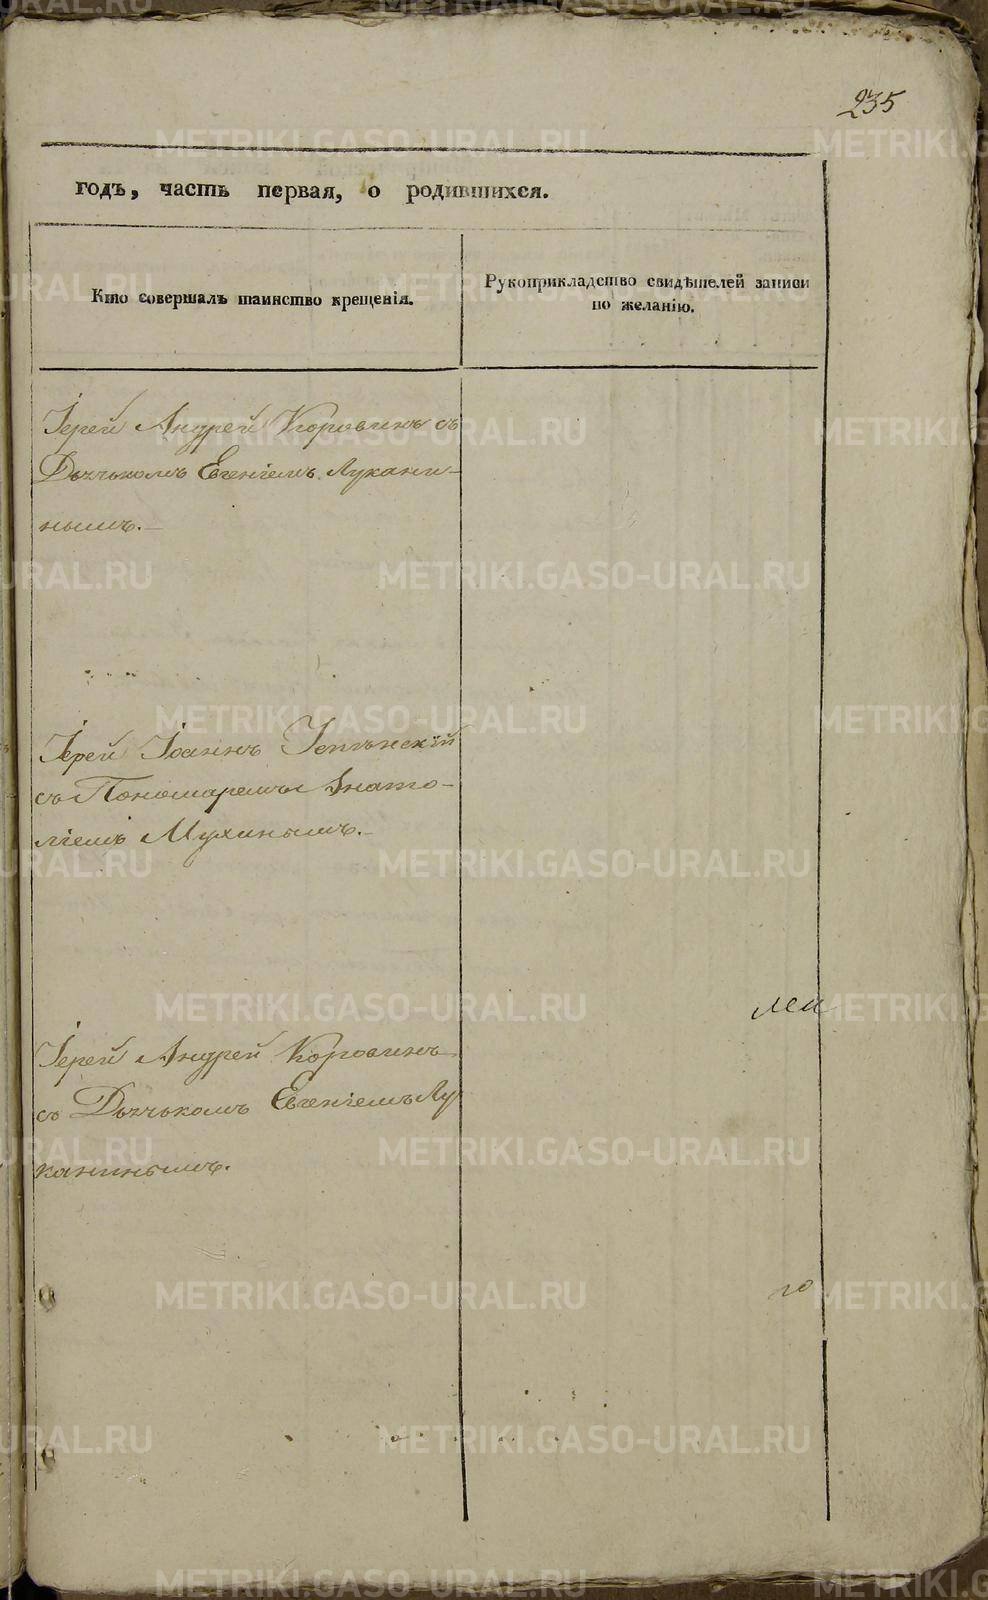 235
годъ, часть первая, о родившихся.
Кто совершалъ таинство крещенія.
Рукоприкладство свидѣтелей записи
по желанію.
Іерей Андрей Коровинъ съ
Дьячькомъ Евгеніемъ Лукани-
нымъ.
Іерей Іоаннъ
съ Пономаремъ Анато-
ліемъ Мухинымъ.
Іерей Андрей Коровинъ
съ Дьячькомъ Евгеніемъ Лу
канинымъ.
METRIKI.GASO-URAL.RU